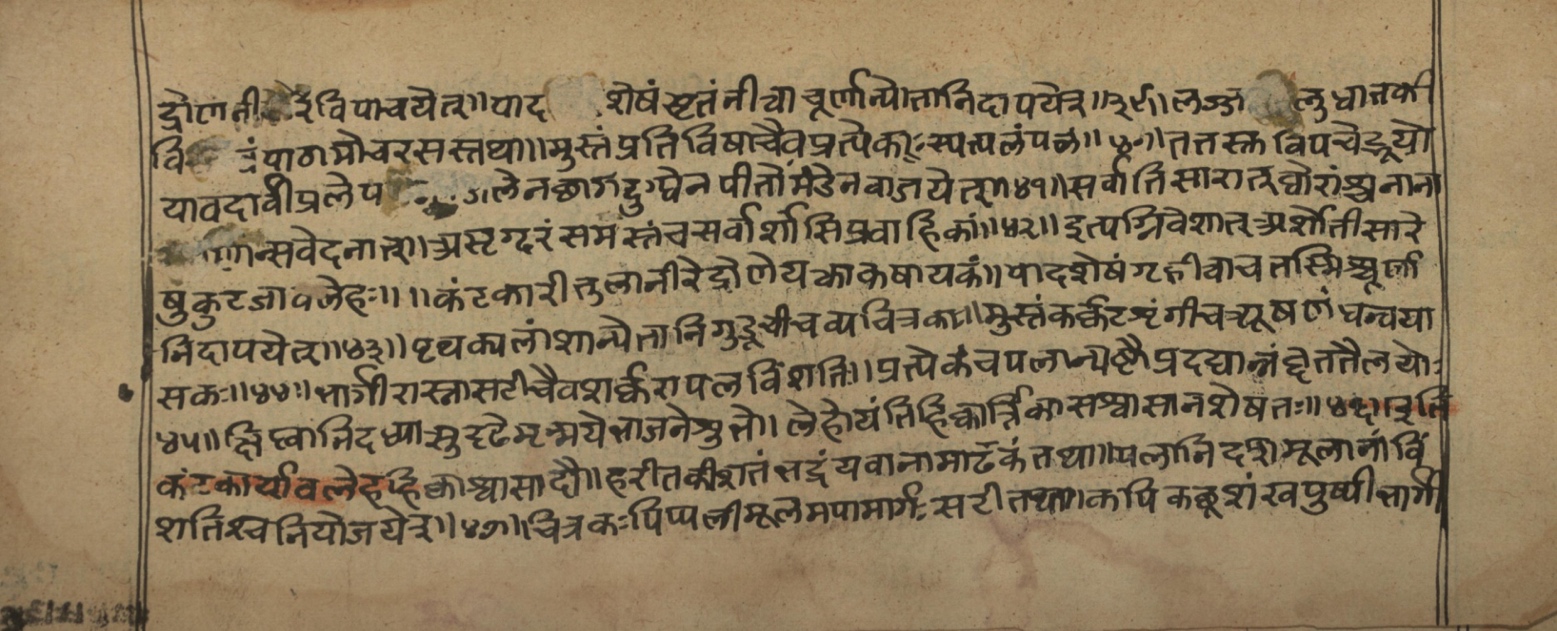 द्रोणनी रे विपाचयेत्॥पाद शेषंसृतंनीत्वाचूर्णान्येतानिदापयेत्॥३९॥लज्जा लुधातकी
वि ल्वंपाठामोचरसस्तथा॥मुस्तंप्रतिविषाचैवप्रत्येकाःस्पत्पलंपलं॥४०॥ततस्क्तविपचेद्भूयो
यावदार्वीप्रलेप जलेनछागदुग्धेनपीतोमंडेनवाजयेत्॥४१॥सर्वातिसारात्घोरांश्चनाना
वर्णान्सवेदनात्॥असृग्दरंसमस्तंचसर्वार्शांसिप्रवाहिकां॥४२॥इत्यग्निवेशात्अर्शोतीसारे
षुकुटजावलेहः॥॥कंटकारीतुलानीरेद्रोणेपक्वाकषायकं॥पादशेषंगृहीत्वाचतस्मिंश्चूर्णा
निदापयेत्॥४३॥पृथक्पलांशान्येतानिगुडूचीचव्यचित्रकाः॥मुस्तंकर्कटशृंगीचत्र्यूषणंधन्वया
सकः॥४४॥भार्गीरास्नासटीचैवशर्करापलविंशतिः॥प्रत्येकंचपलान्यष्टौप्रदद्यान्नंघृततैलयोः
४५॥क्षिप्त्वानिदध्यात्सुदृढेमृन्मयेभाजनेशुभे॥लेहोयंतिहिक्कार्त्तिकासश्वासानशेषतः॥४६॥इति
कंटकार्यावलेहहिक्काश्वासादौ॥हरीतकीशतंभद्रंयवानामाढकंतथा॥पलानिदशमूलानांविं
शतिश्चनियोजयेत्॥४७॥चित्रकःपिप्पलीमूलमपामार्गःसटीतथा॥कपिकछूशंखपुष्पीभार्गी